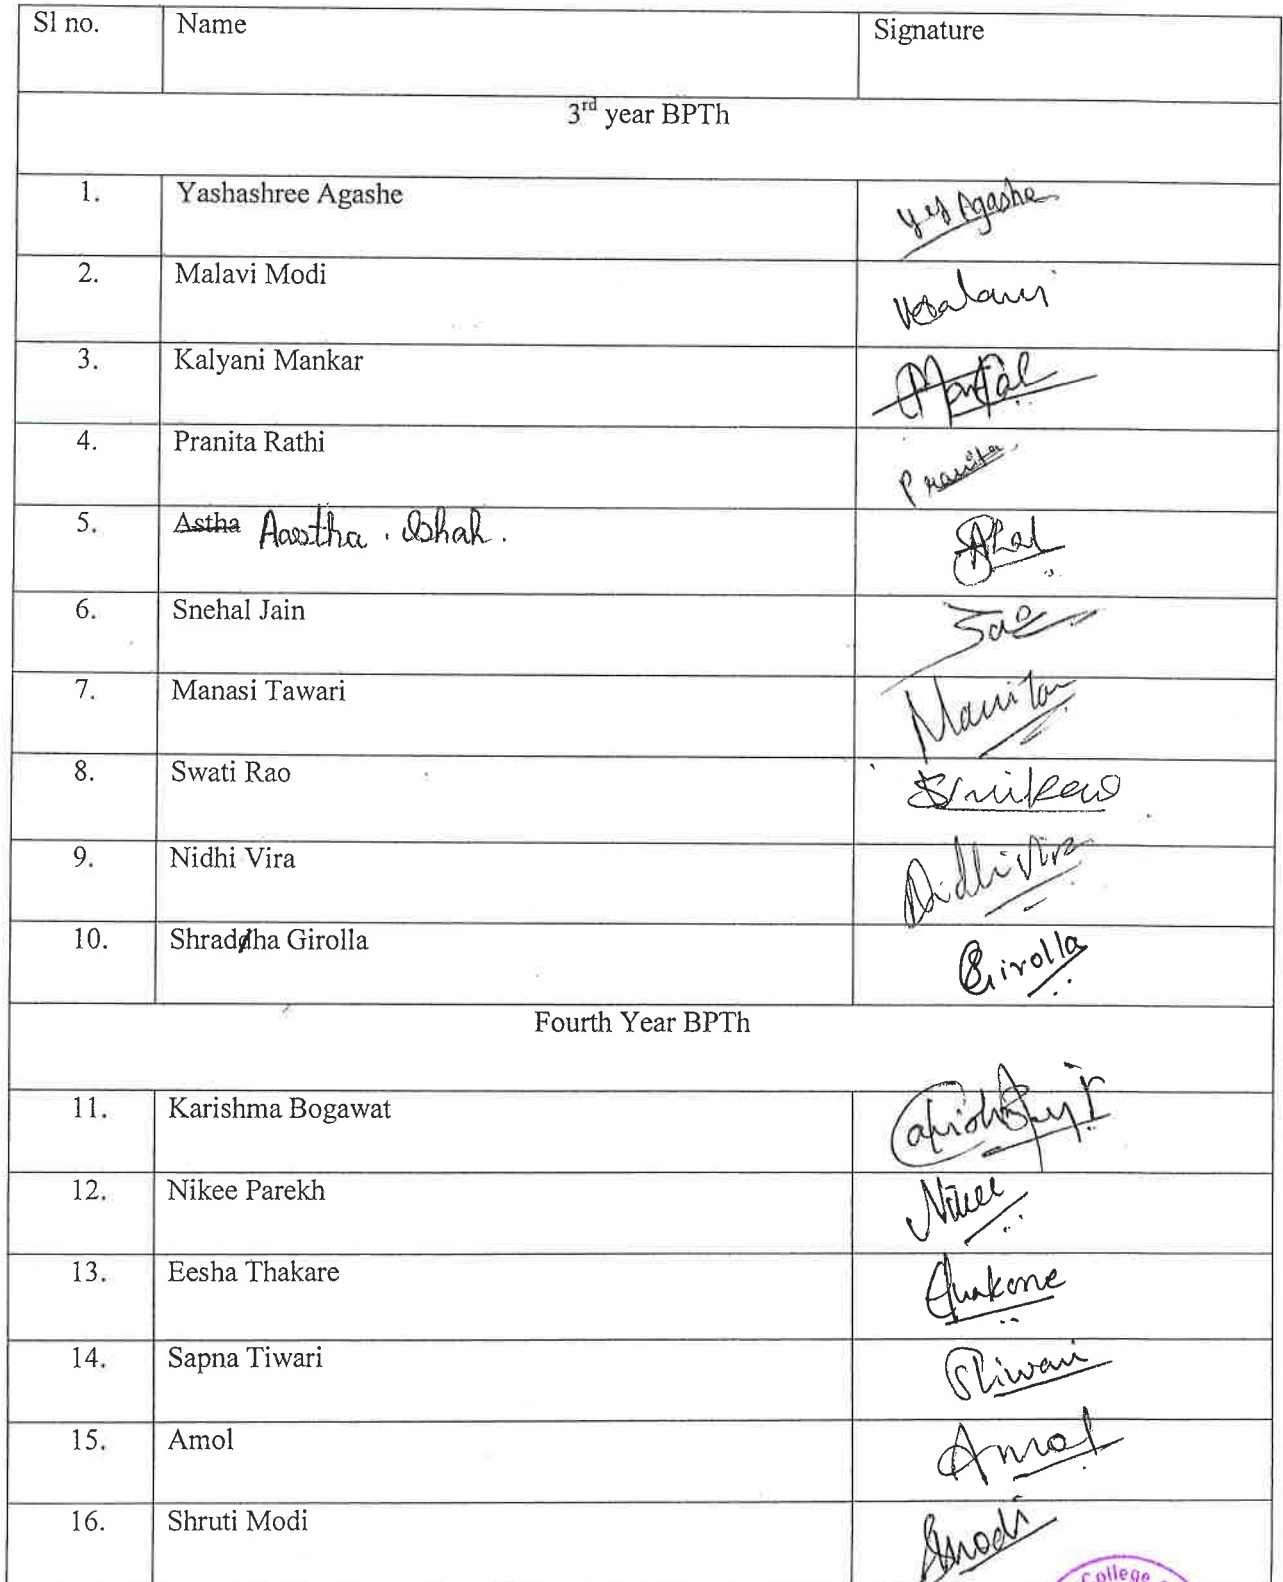 Sl no. Name Signature
3rd year BPTh
1. Yashashree Agashe Agashe
2. Malavi Modi Malavi
3. Kalyani Mankar
4. Pranita Rathi Pranita
5. Astha Aastha . Shah.
6. Snehal Jain
7. Manasi Tawari
8. Swati Rao
9. Nidhi Vira Nidhi Vira
10. Shraddha Girolla Girolla
Fourth Year BPTh
11. Karishma Bogawat
12. Nikee Parekh Nikee
13. Eesha Thakare
14. Sapna Tiwari
15. Amol Amol
16. Shruti Modi
College